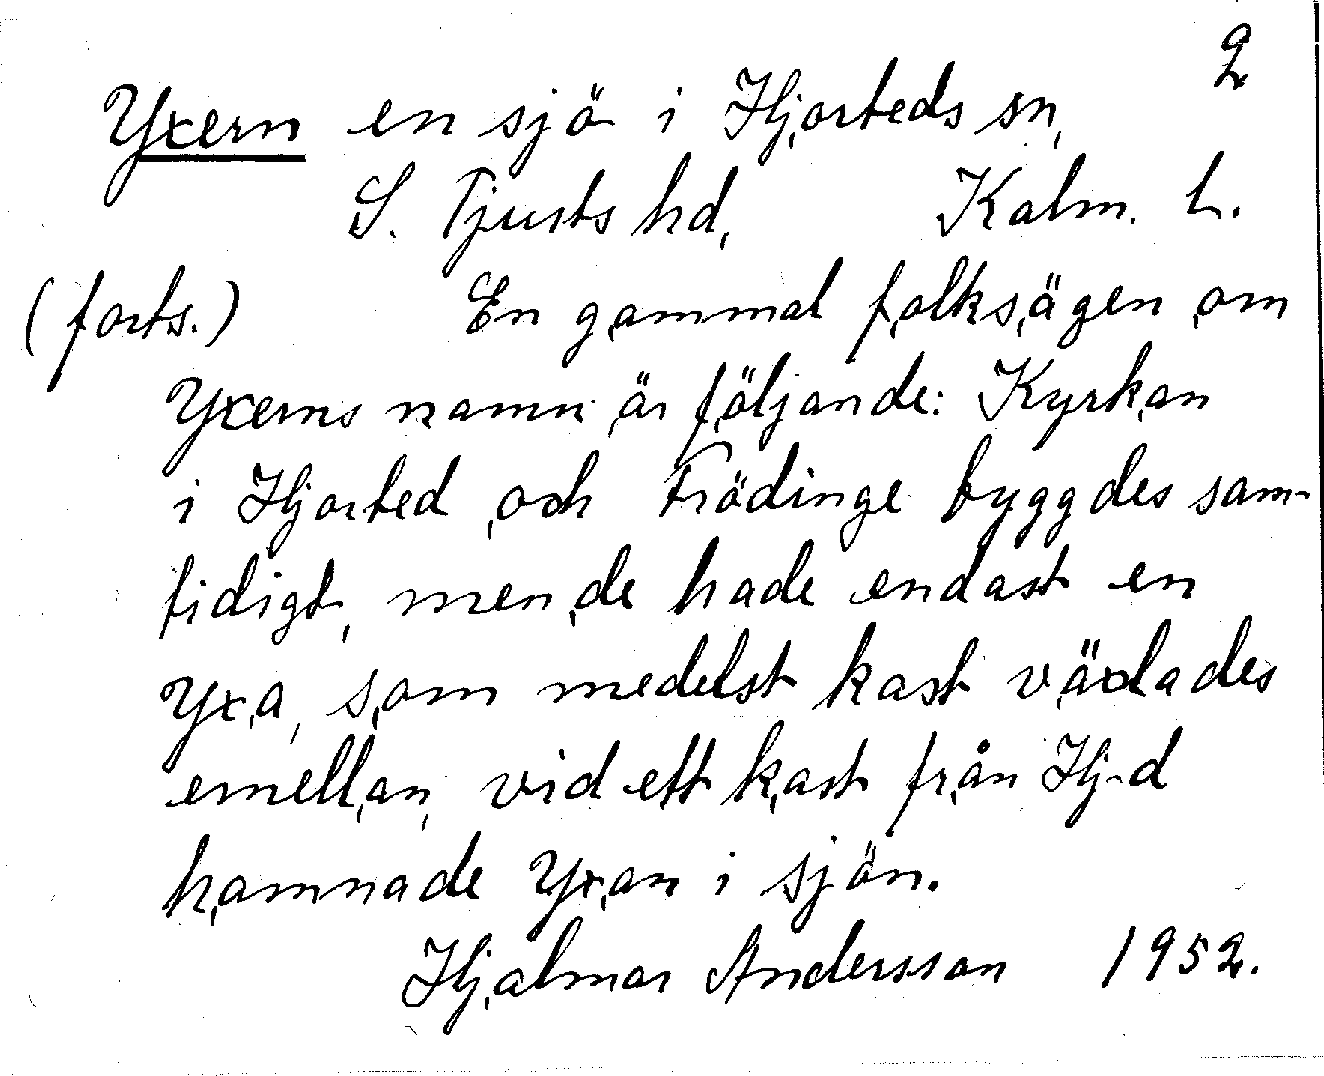 2
Yxern en sjö i Hjorteds sn,
S. Tjusts hd, Kalm. L.
(forts.) En gammal folksägen om
Yxerns namn är följande: Kyrkan
i Hjorted och Frödinge byggdes sam-
tidigt, men de hade endast en
Yxa, som medelst kast växlades
emellan, vid ett kast från Hj-d
hamnade Yxan i sjön.
Hjalmar Andersson 1952.